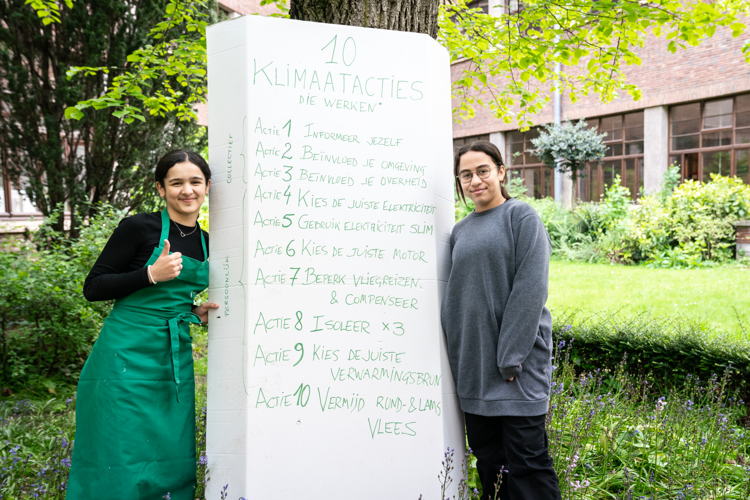 10
KLIMAATACTIES
DIE WERKEN*
COLLECTIEF
ACTIE 1 INFORMEER JEZELF
ACTIE 2 BEÏNVLOED JE OMGEVING
ACTIE 3 BEÏNVLOED JE OVERHEID
ACTIE 4 KIES DE JUISTE ELEKTRICITEIT
ACTIE 5 GEBRUIK ELEKTRICITEIT SLIM
PERSOONLIJK
ACTIE 6 KIES DE JUISTE MOTOR
ACTIE 7 BEPERK VLIEGREIZEN
& COMPENSEER
ACTIE 8 ISOLEER ×3
ACTIE 9 KIES DE JUISTE
VERWARMINGSBRON
ACTIE 10 VERMIJD RUND- & LAMS
VLEES